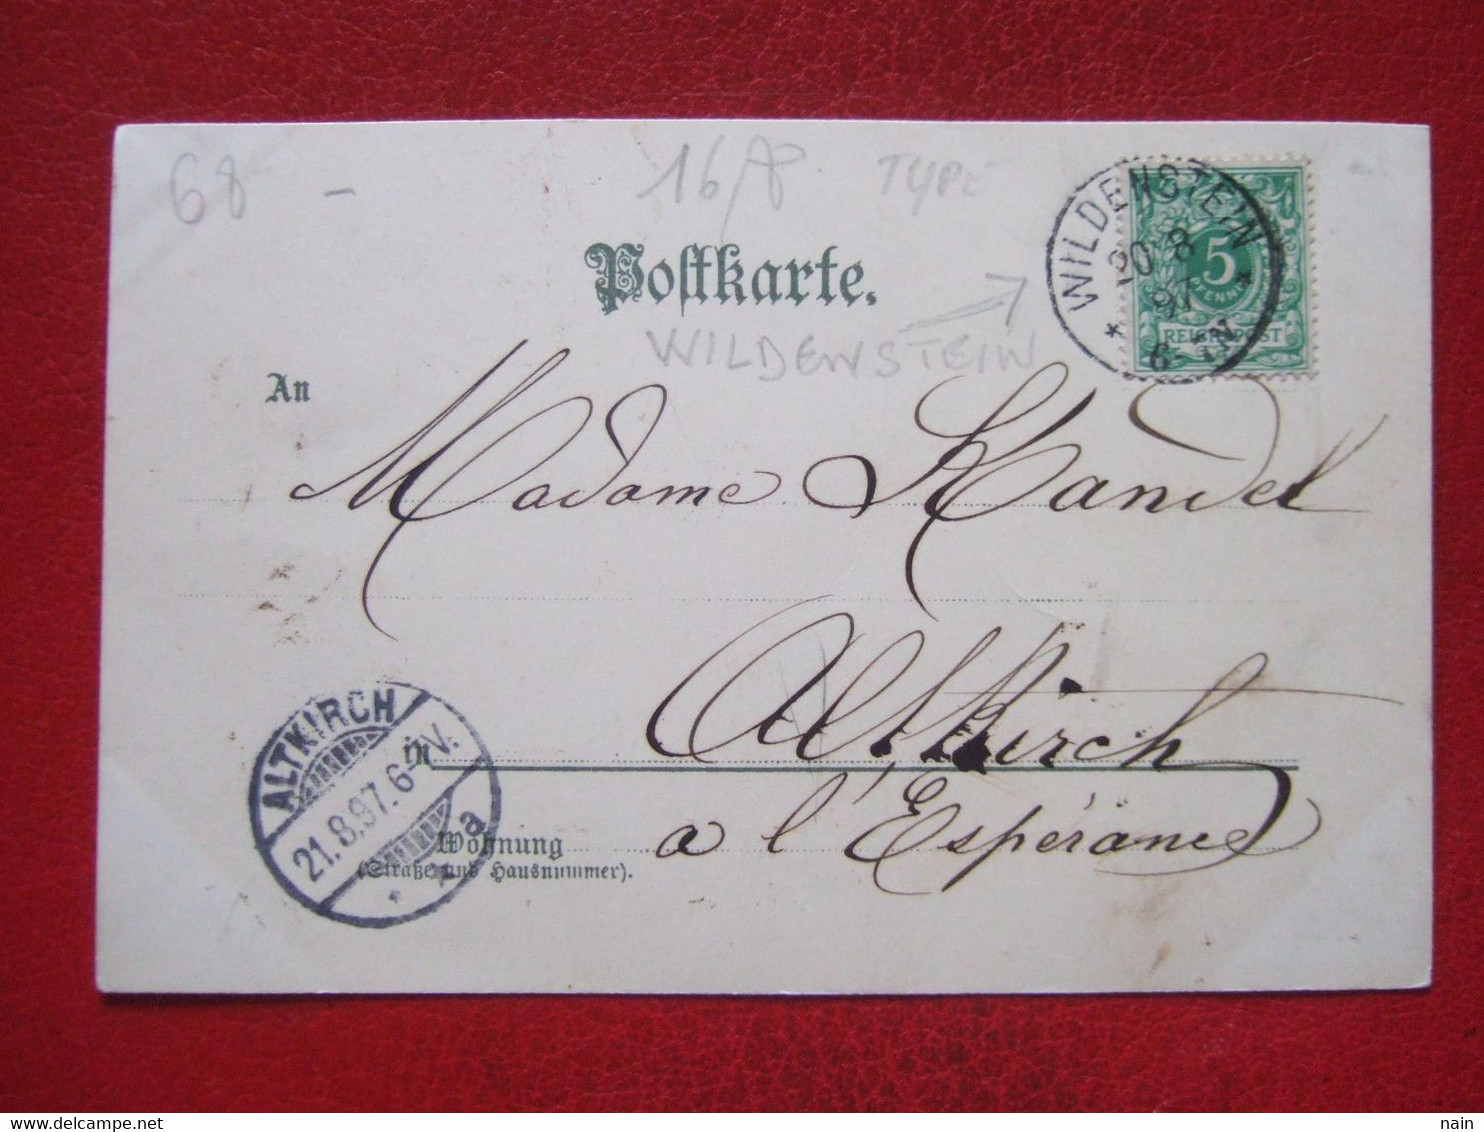 68 - 16/8 TYPE
WILDENSTEIN
20 8
97
6-7N
5
PFENNIG
REICHSPOST
Postkarte.
WILDENSTEIN
An
Madame Handel
Altkirch
in
a l'Espérance
ALTKIRCH
21.8.97.6-7V.
a
Wohnung
(Straße und Hausnummer).
nain